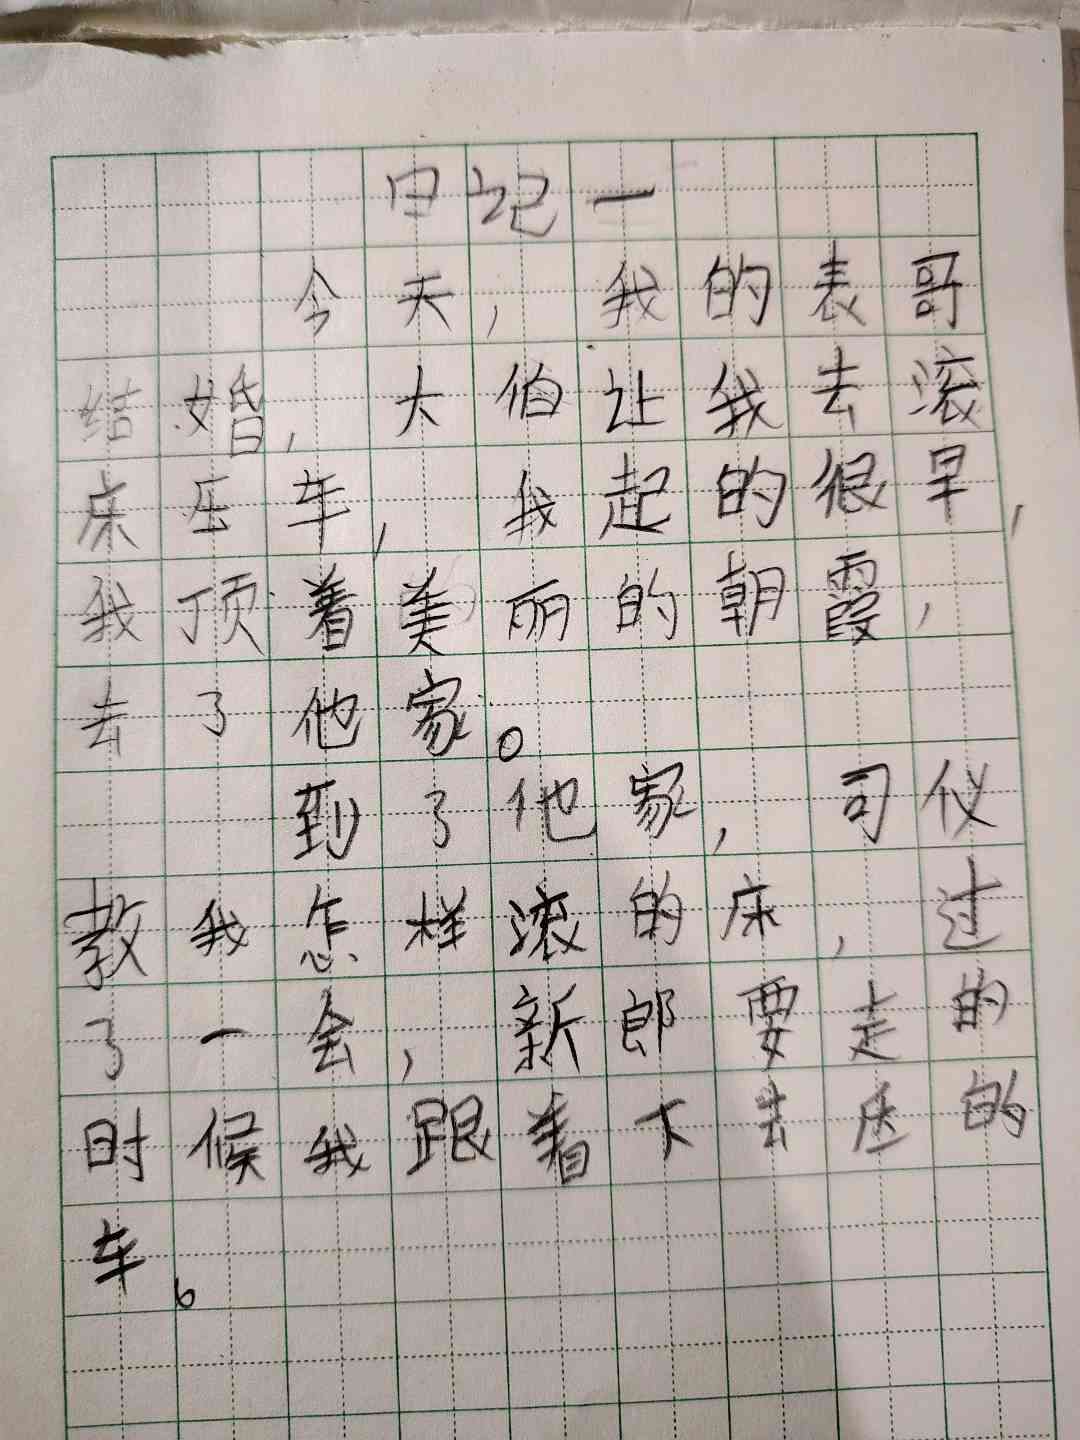 日记一
今天，我的表哥
结婚，大伯让我去滚
床压车，我起的很早，
我顶着美丽的朝霞，
去了他家。
到了他家，司仪
教我怎样滚的床，过
了一会，新郎要走的
时候我跟着下去压的
车。